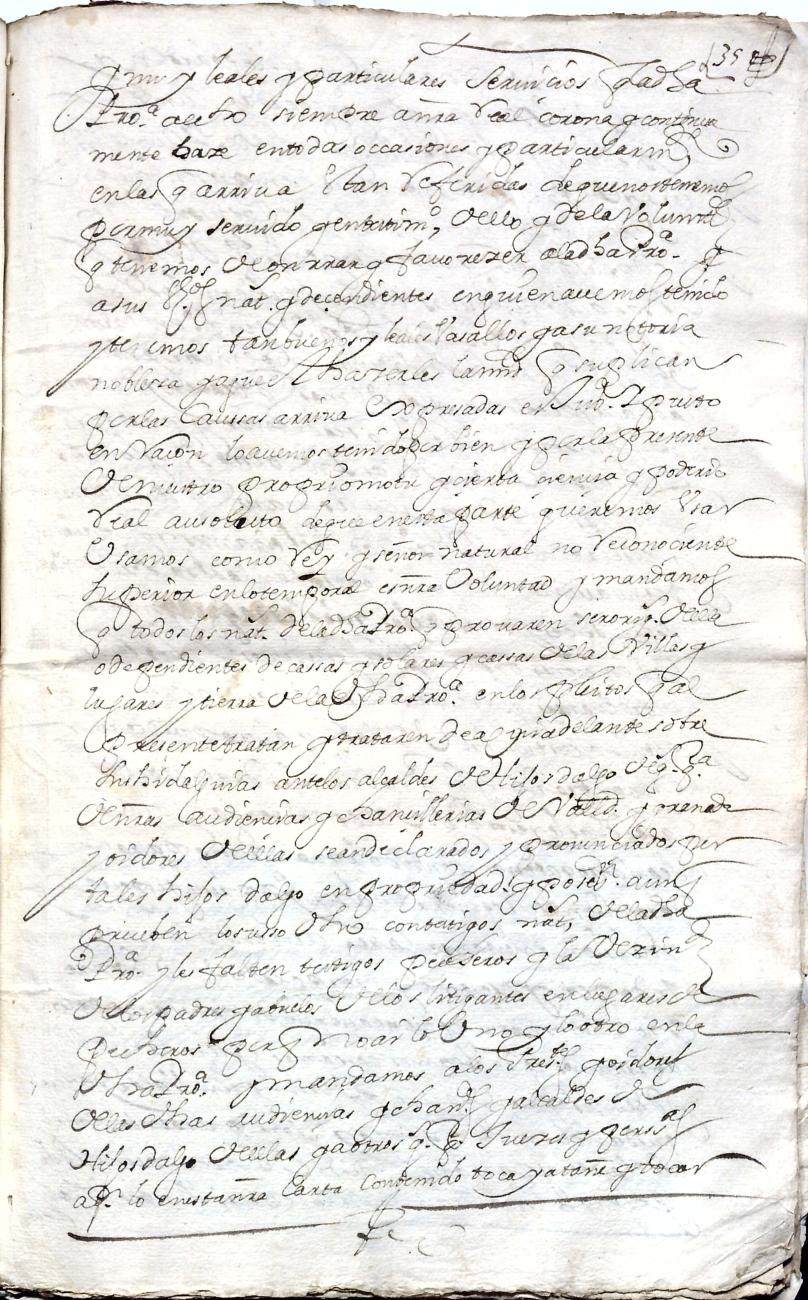 35
q muy leales y particulares servicios q la dha
Pro.ª a echo siempre a nrã Real corona y continua
mente haze en todas occasiones y particularm.te
en las q arriva Estan Referidas de que nos tenemos
por muy servido y en testim.º dello y de la Volunt.d
q tenemos de onrrar y favorezer a la dha Pro.ª y
a sus hijos nat. y decendientes en quien avemos tenido
y tenemos tan buenos y leales Vasallos y a su notoria
nobleza y a que Es hazerles la mrd q suplican
por las Caussas arriva Expresadas es Just. I puesto
en Raçon lo avemos tenido por bien y por la presente
de nuestro proprio motu y cierta ciencia y poderio
Real ausoluto de que en esta parte queremos Usar
Usamos como Rey y señor natural no Reconociente
superior en lo temporal es nrã Voluntad y mandamos
q todos los nat. de la dha Pro.ª q provaren ser orig.s della
o dependientes de cassas y solares y cassas de las Villas y
lugares y tierra de la dha Pro.ª en los pleitos q al
presente tratan y trataren de aqui adelante sobre
sus hidalguias ante los alcaldes de Hijos dalgo
de nrãs audiencias y chancillerias de Vallid. y granada
y oidores dellas sean declarados y pronunciados por
tales hijos dalgo en propriedad y poses.on aunq
prueben lo susso dho con testigos nat. de la dha
Pro.ª y les falten testigos pecheros y la Vezind.d
de los padres y abuelos de los litigantes en lugares de
pecheros por provar lo Uno y lo otro en la
dha Pro.ª y mandamos a los Pres.tes y oidores
de las dhas audiencias y chan.s y alcaldes de
Hijos dalgo dellas y a otros Juezes y perss.as
a q.n lo en esta nrã Carta Contenido toca y atañe y tocar